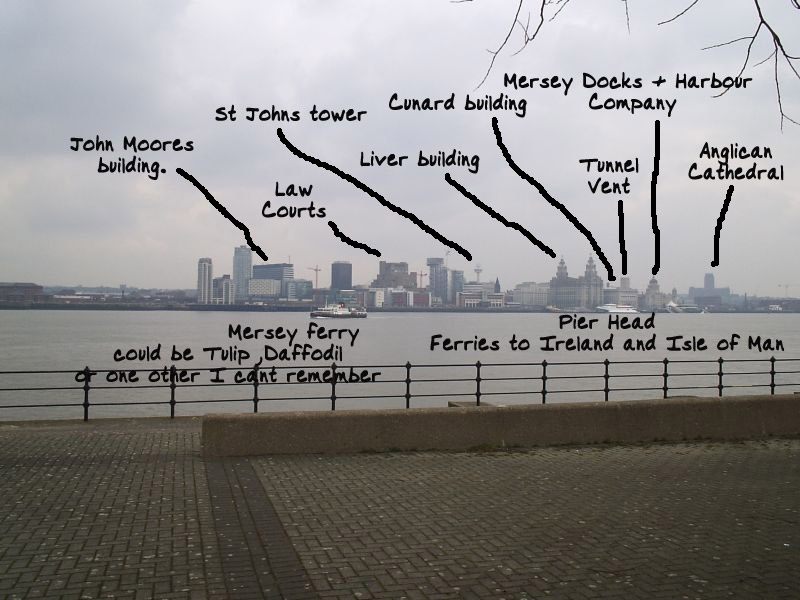 Mersey Docks + Harbour
Company
Cunard building
St Johns tower
John Moores
building.
Liver building
Law
Courts
Tunnel
Vent
Anglican
Cathedral
Mersey ferry
could be Tulip ,Daffodil
or one other I cant remember
Pier Head
Ferries to Ireland and Isle of Man